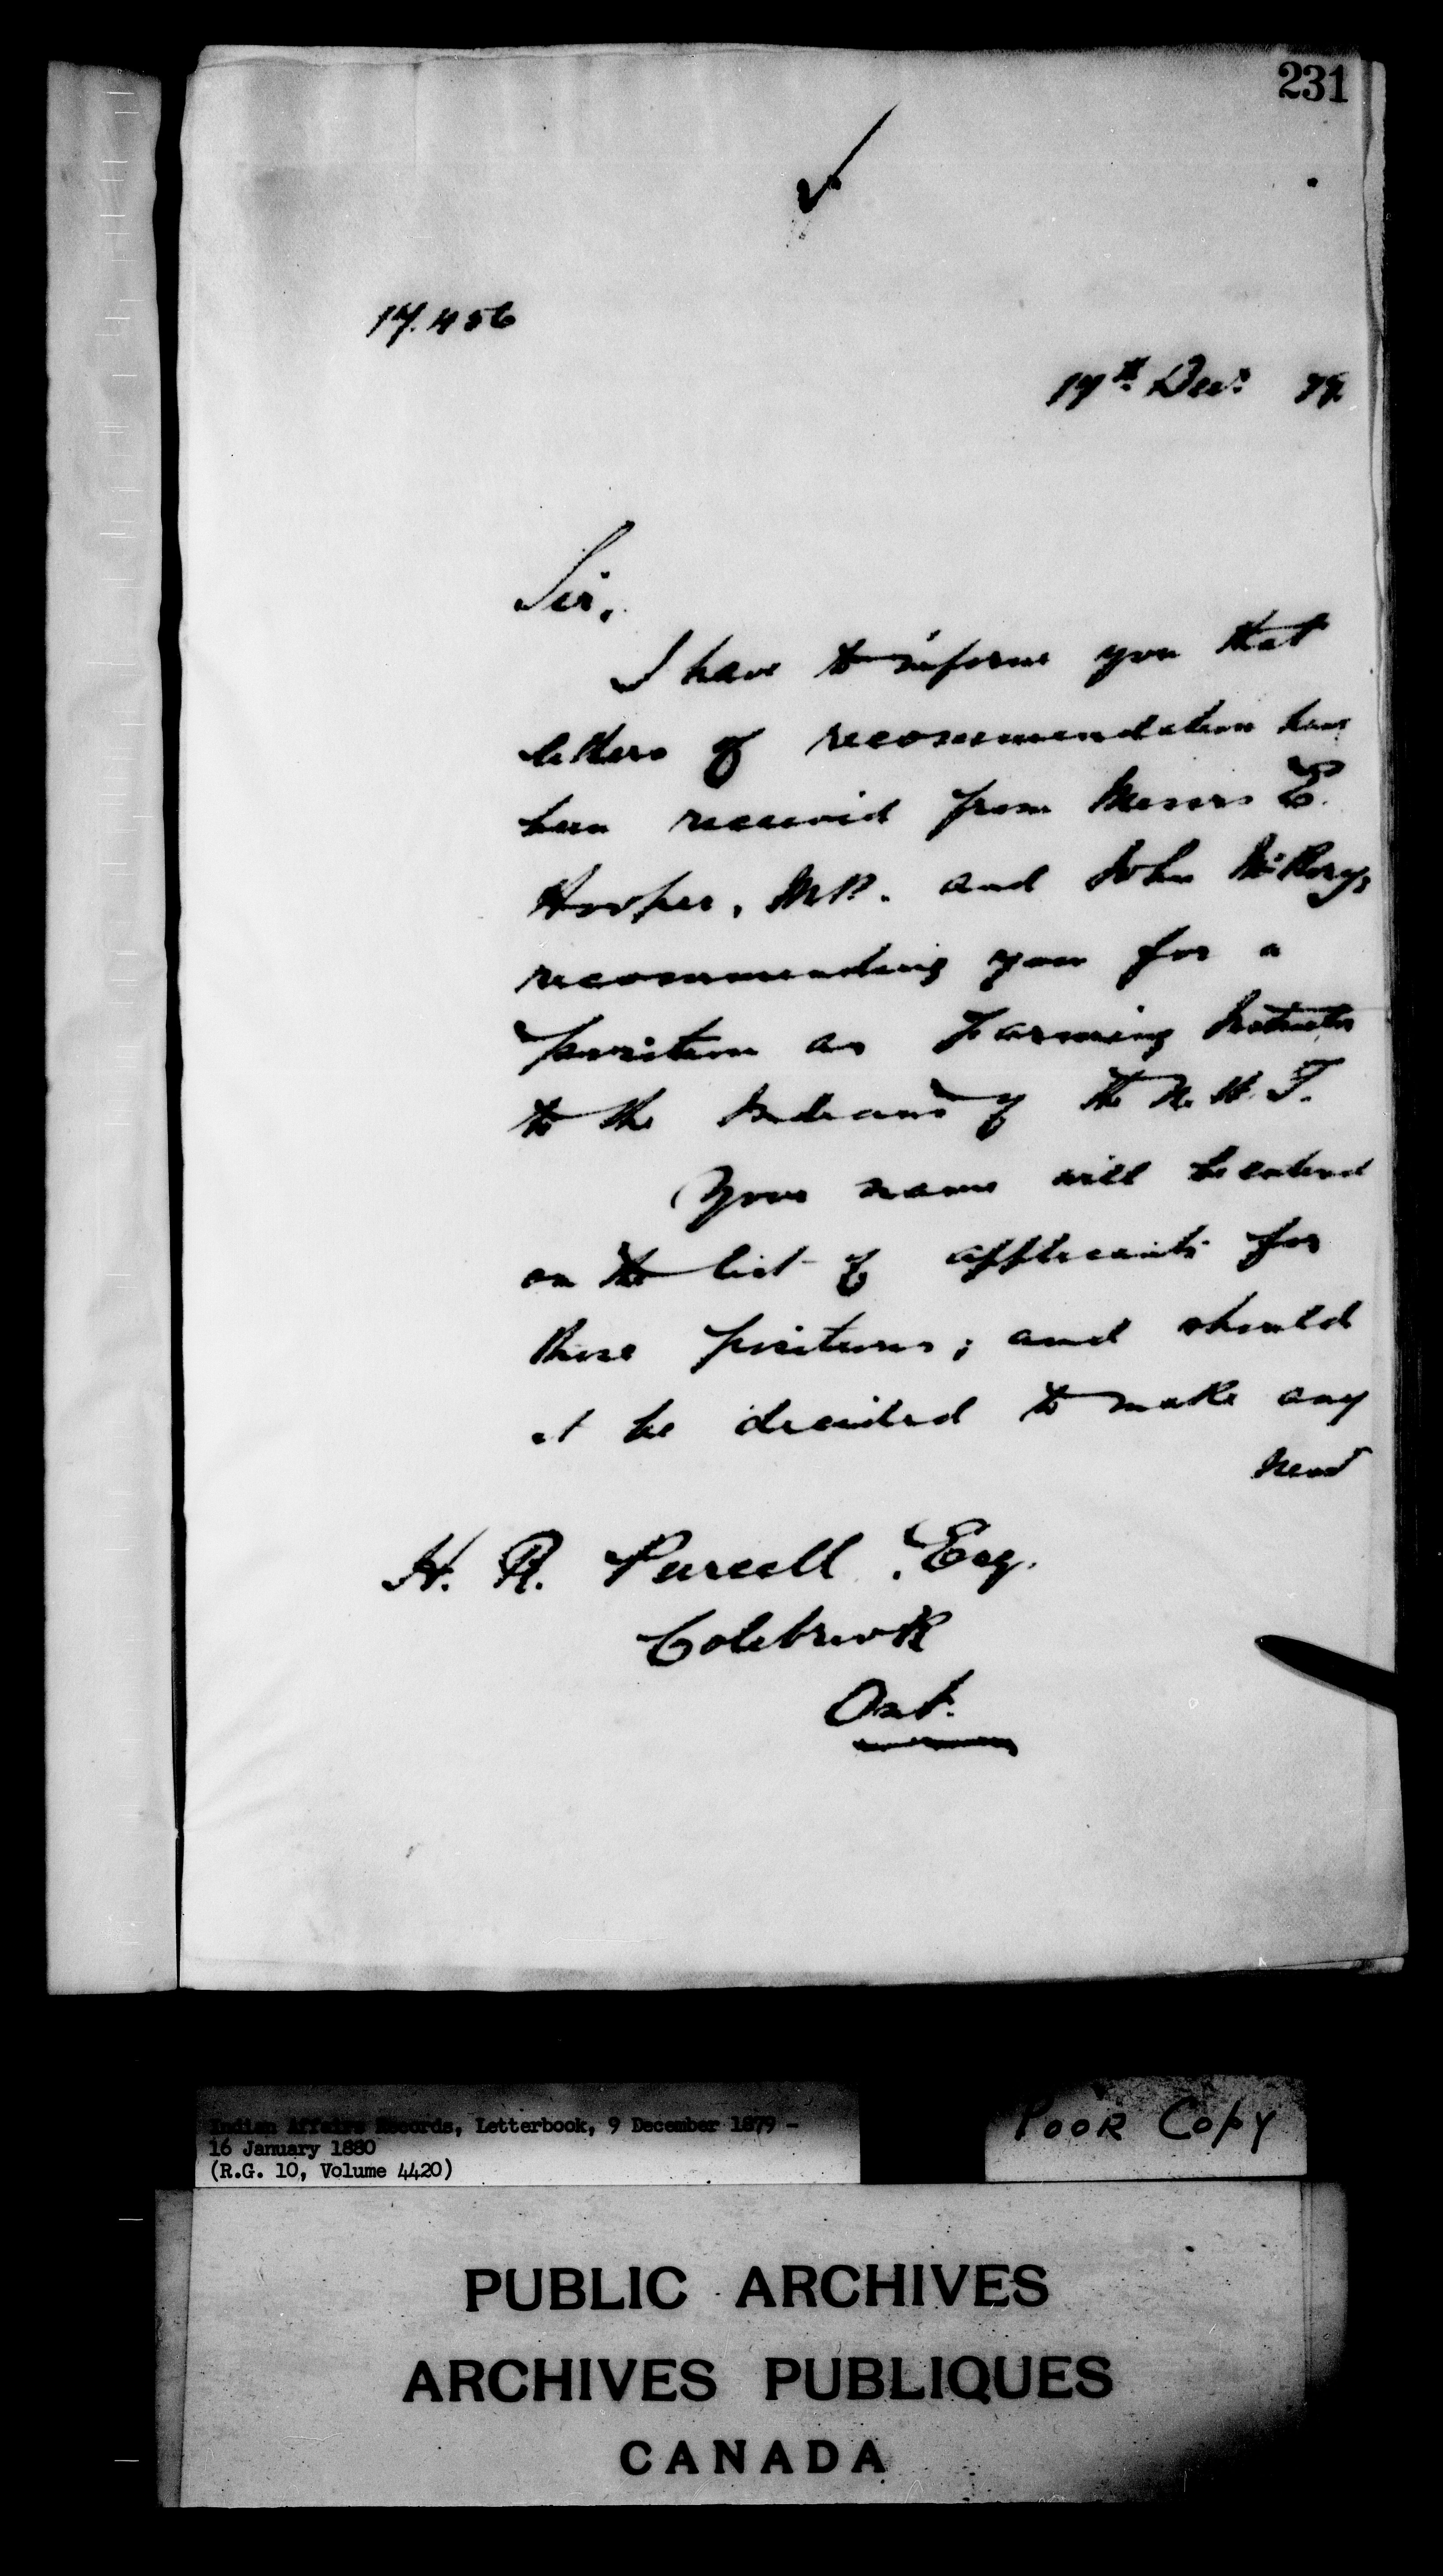 231
17.456
17th Decr 79.
Sir,
I have to inform you that
letters of recommendation have
been received from Messrs E.
Hooper, M.P. and John McRory,
recommending you for a
position as Farming Instructor
to the Indians of the N. W. T.
Your name will be entered
on the list of applicants for
these positions; and should
it be decided to make any
new
H. R. Purcell, Esq.
Colebrook
Ont.
Indian Affairs Records, Letterbook, 9 December 1879 -
16 January 1880
(R.G. 10, Volume 4420)
POOR COPY
PUBLIC ARCHIVES
ARCHIVES PUBLIQUES
CANADA